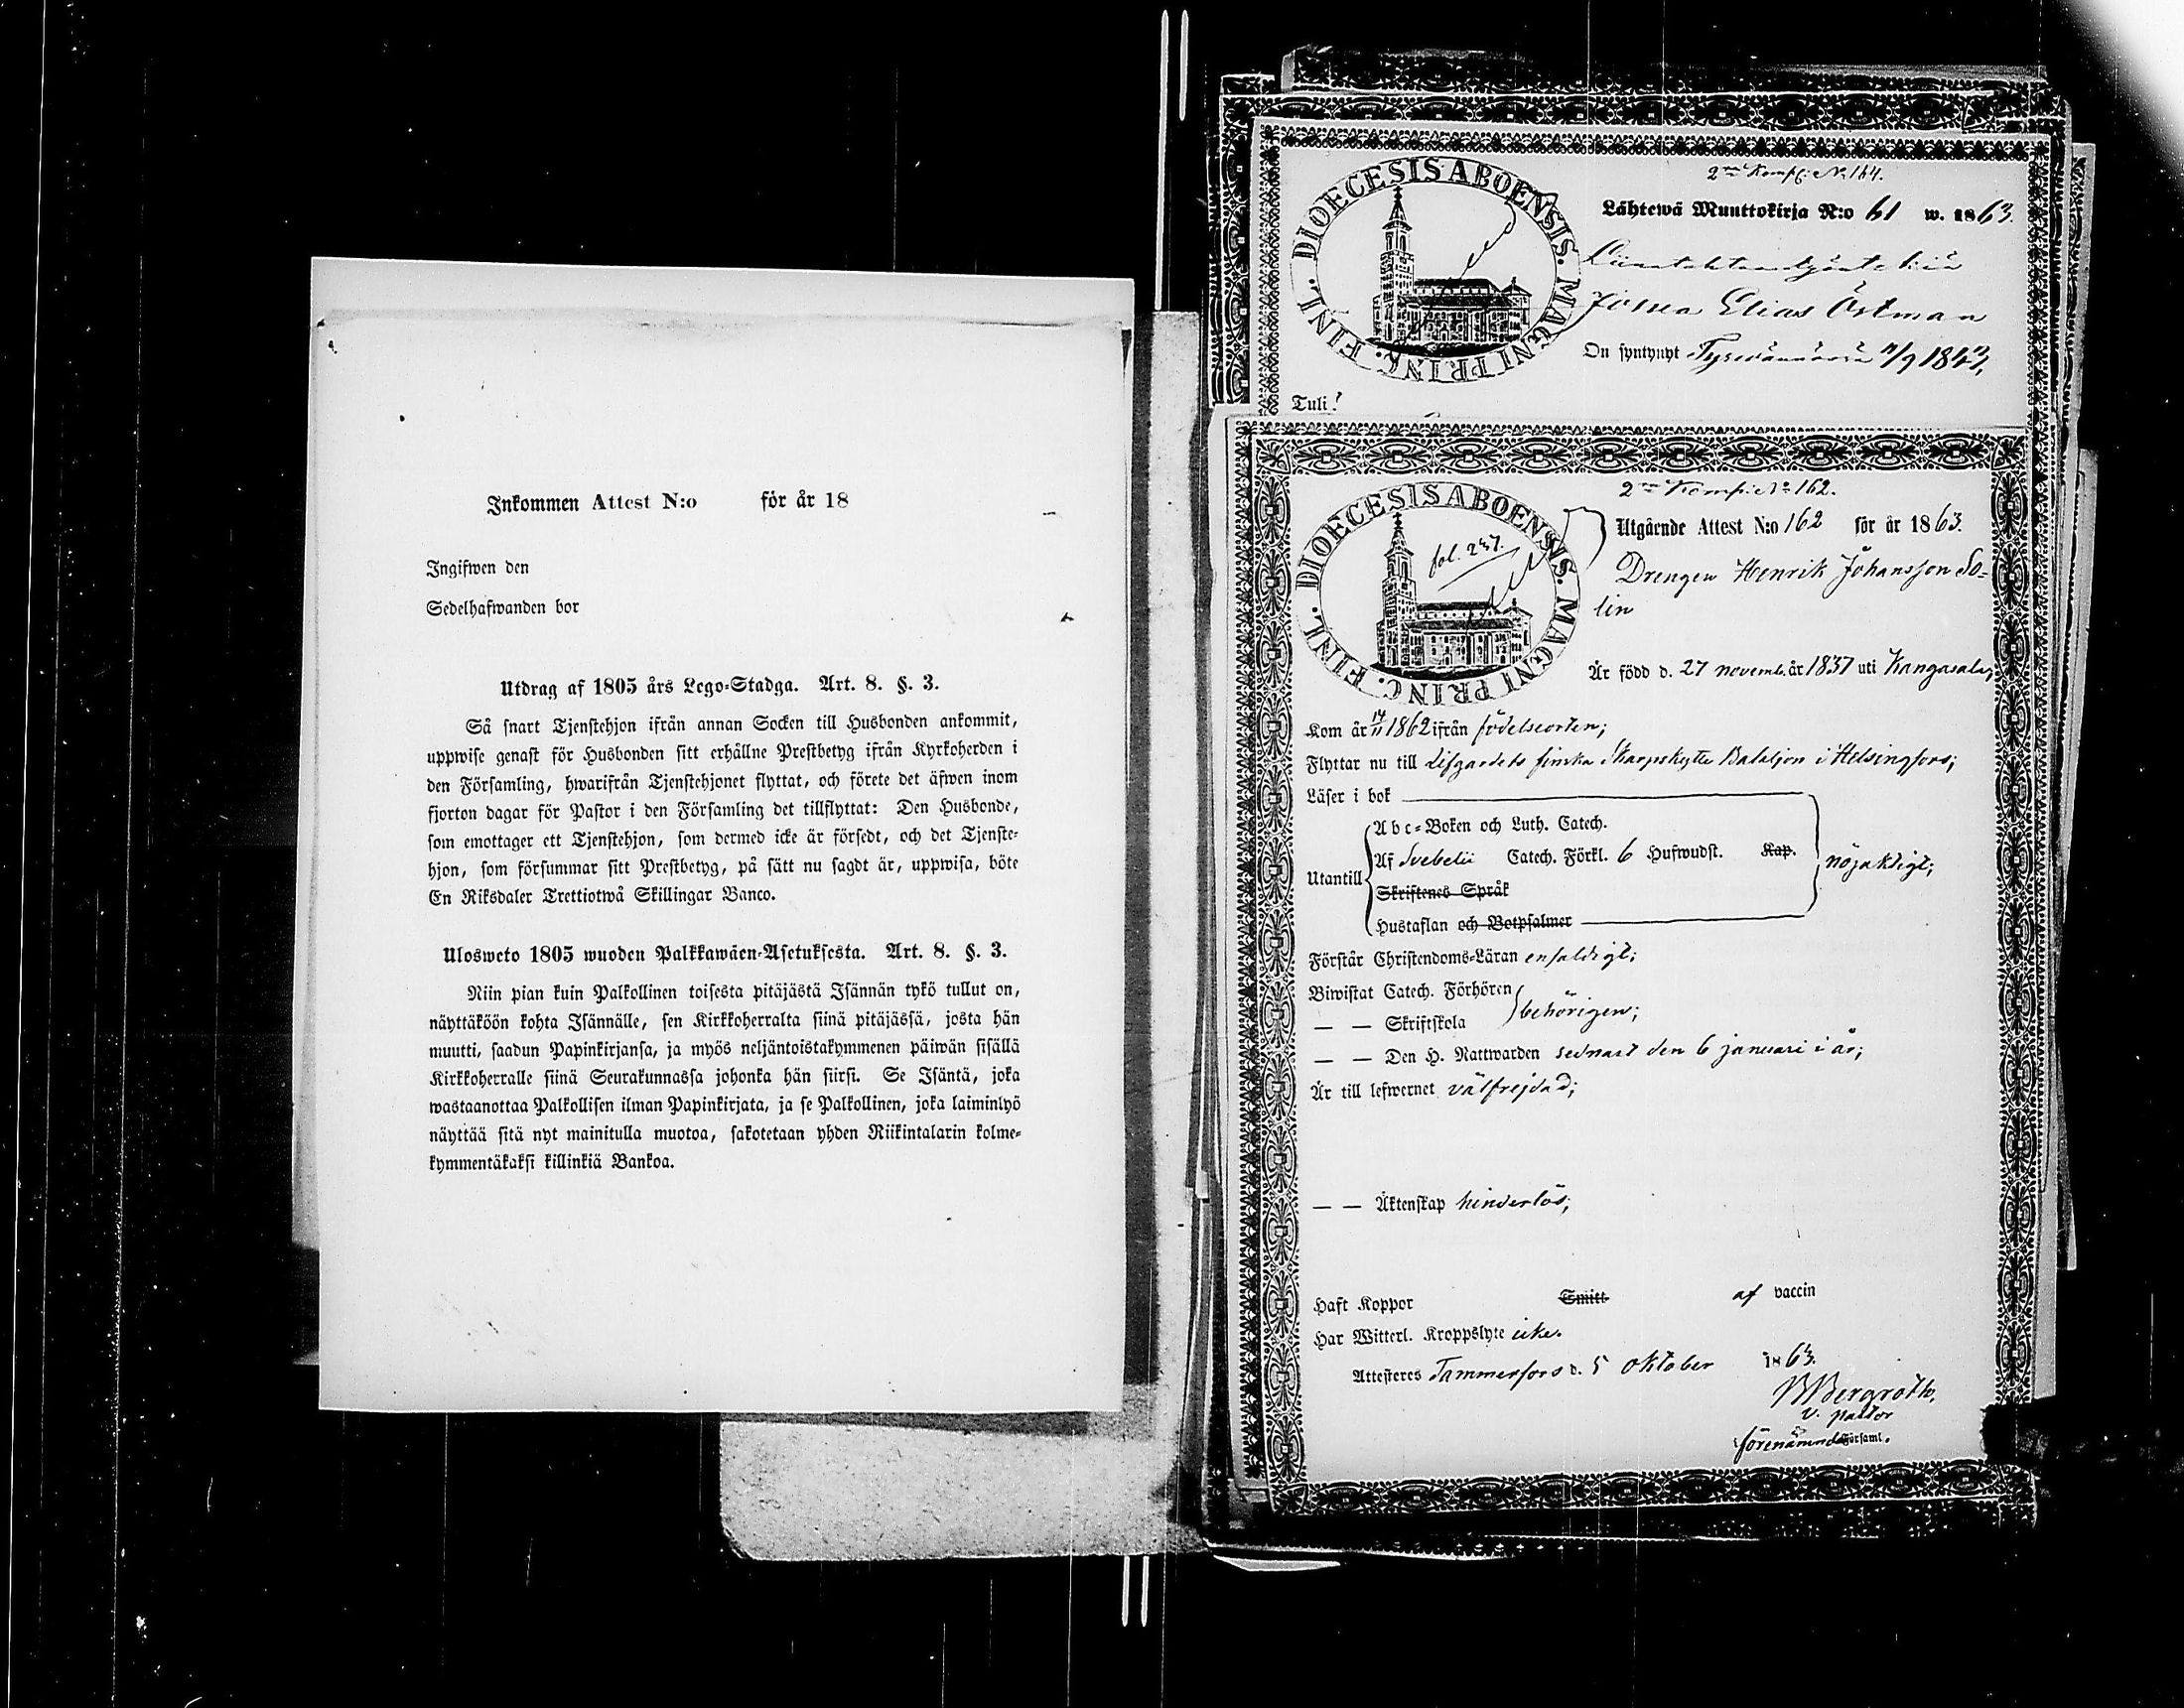 Inkommen Attest N:o för år 18
Ingifwen den
Sedelhafwanden bor
Utdrag af 1805 års Lego-Stadga. Art. 8. §. 3.
Så snart Tjenstehjon ifrån annan Socken till Husbonden ankommit,
uppwise genast för Husbonden sitt erhållne Prestbetyg ifrån Kyrkoherden i
den Församling, hwarifrån Tjenstehjonet flyttat, och förete det äfwen inom
fjorton dagar för Pastor i den Församling det tillflyttat: Den Husbonde,
som emottager ett Tjenstehjon, som dermed icke är försedt, och det Tjenste-
hjon, som försummar sitt Prestbetyg, på sätt nu sagdt är, uppwisa, böte
En Riksdaler Trettiotwå Skillingar Banco.
Ulosweto 1805 wuoden Palkkawäen-Asetuksesta. Art. 8. §. 3.
Niin pian kuin Palkollinen toisesta pitäjästä Isännän tykö tullut on,
näyttäköön kohta Isännälle, sen Kirkkoherralta siinä pitäjässä, josta hän
muutti, saadun Papinkirjansa, ja myös neljäntoistakymmenen päiwän sisällä
Kirkkoherralle siinä Seurakunnassa johonka hän siirsi. Se Isäntä, joka
wastaanottaa Palkollisen ilman Papinkirjata, ja se Palkollinen, joka laiminlyö
näyttää sitä nyt mainitulla muotoa, sakotetaan yhden Riikintalarin kolme-
kymmentäkaksi killinkiä Bankoa.
DIOECESIS ABOENSIS. MAGNI PRINC. FINL.
2 Komp: No 164.
Lähtewä Muuttokirja N:o 61 w. 1863.
Elias Östman
On syntynyt
Tuli
DIOECESIS ABOENSIS. MAGNI PRINC. FINL.
fol. 237.
2 Komp: No 162.
Utgårnde Attest N:o 162 för år 1863.
Drengen Henrik Johansson So-
lin
Är född d. 27 novemb. år 1837 uti Kangasala,
Kom år 14/11 1862 ifrån födelseorten;
Flyttar nu till Lifgardets finska Skarpskytte Bataljon i Helsingfors;
Läser i bok
Utantill
Abc-Boken och Luth. Catech.
Af Svebelii Catech. Förkl. 6 Hufwudst. Kap.
Skriftenes Språk
Hustaflan och Botpsalmer
nöjaktigt;
Förstår Christendoms-Läran enfaldigt;
Biwistat Catech. Förhören
— — Skriftskola
behörigen;
— — Den H. Nattwarden sednast den 6 januari i år;
Är till lefwernet välfrejdad;
— — Äktenskap hinderlös;
Haft Koppor Smitt af vaccin
Har Witterl. Kroppslyte icke.
Attesteres Tammerfors d. 5 oktober 1863.
Bergroth,
v. pastor
i förenämnde Församl.